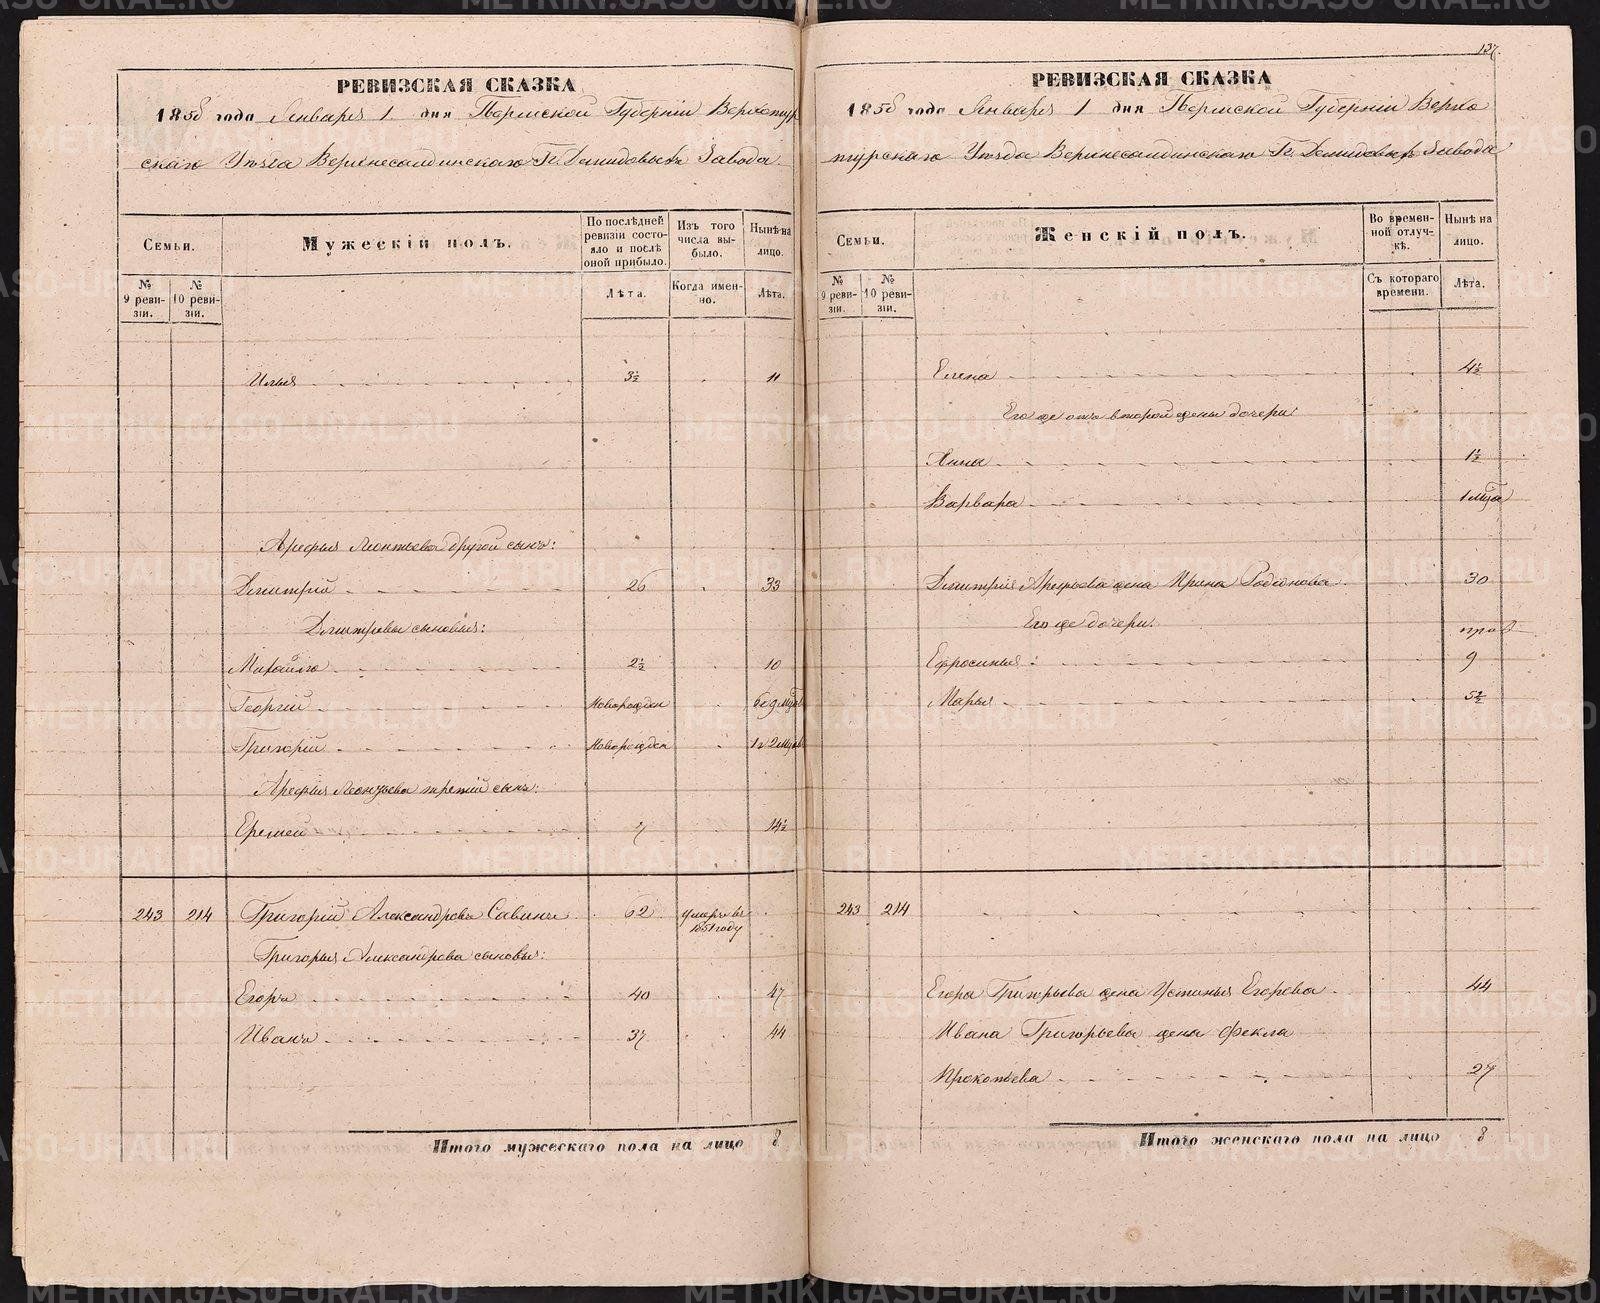 РЕВИЗСКАЯ СКАЗКА
1858 года Января 1 дня Пермской Губерніи Верхотур
скаго Уѣзда Верхнесалдинскаго Г.г. Демидовыхъ Завода
Семьи.
Мужескій полъ.
По послѣдней ревизіи состояло и послѣ оной прибыло.
Изъ того числа выбыло.
Нынѣ на лицо.
№ 9 ревизіи.
№ 10 ревизіи.
Лѣта.
Когда именно.
Лѣта.
Илья 3½ 11
Арефья Леонтьева другой сынъ:
Дмитрій 26 33
Дмитріевы сыновья:
Михайло 2½ 10
Георгій Новорожден 6 и 9 мцов
Григорій Новорожден 1 и 2 мцов
Арефья Леонтьева третій сынъ:
Еремей 7 14½
243 214 Григорій Александровъ Савинъ 62 умеръ въ 1851 году
Григорья Александрова сыновья:
Егоръ 40 47
Иванъ 37 44
Итого мужескаго пола на лицо 8
137.
РЕВИЗСКАЯ СКАЗКА
1858 года Января 1 дня Пермской Губерніи Верхо
турскаго Уѣзда Верхнесалдинскаго Г.г. Демидовыхъ Завода
Семьи.
Женскій полъ.
Во временной отлучкѣ.
Нынѣ на лицо.
№ 9 ревизіи.
№ 10 ревизіи.
Съ котораго времени.
Лѣта.
Елена 4½
Его же отъ второй жены дочери:
Анна 1½
Варвара 1 мца
Дмитрія Арефьева жена Ирина Родіонова 30
Его же дочери:
Ефросинья 9
Марья 5½
243 214
Егора Григорьева жена Устинья Егорова 44
Ивана Григорьева жена Фекла
Прокопьева 27
Итого женскаго пола на лицо 8
METRIKI.GASO-URAL.RU